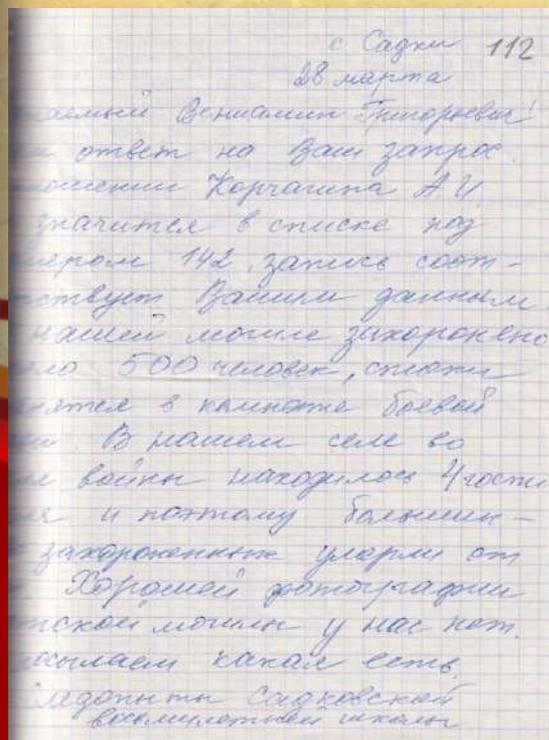 с. Садки 112
28 марта
аемый Вениамин Григорьевич!
ответ на Ваш запрос.
ношении Корчагина А.И.
значится в списке под
мером 142, запись соот-
тствует Вашим данным
нашей могиле захоронено
ло 500 человек, списки
нятся в комнате боевой
В нашем селе во
войны находилось 4 госпи
ля и поэтому большин-
захороненных умерли от
Хорошей фотографии
тской могилы у нас нет.
сылаем какая есть.
ледопыты Садковской
восьмилетней школы